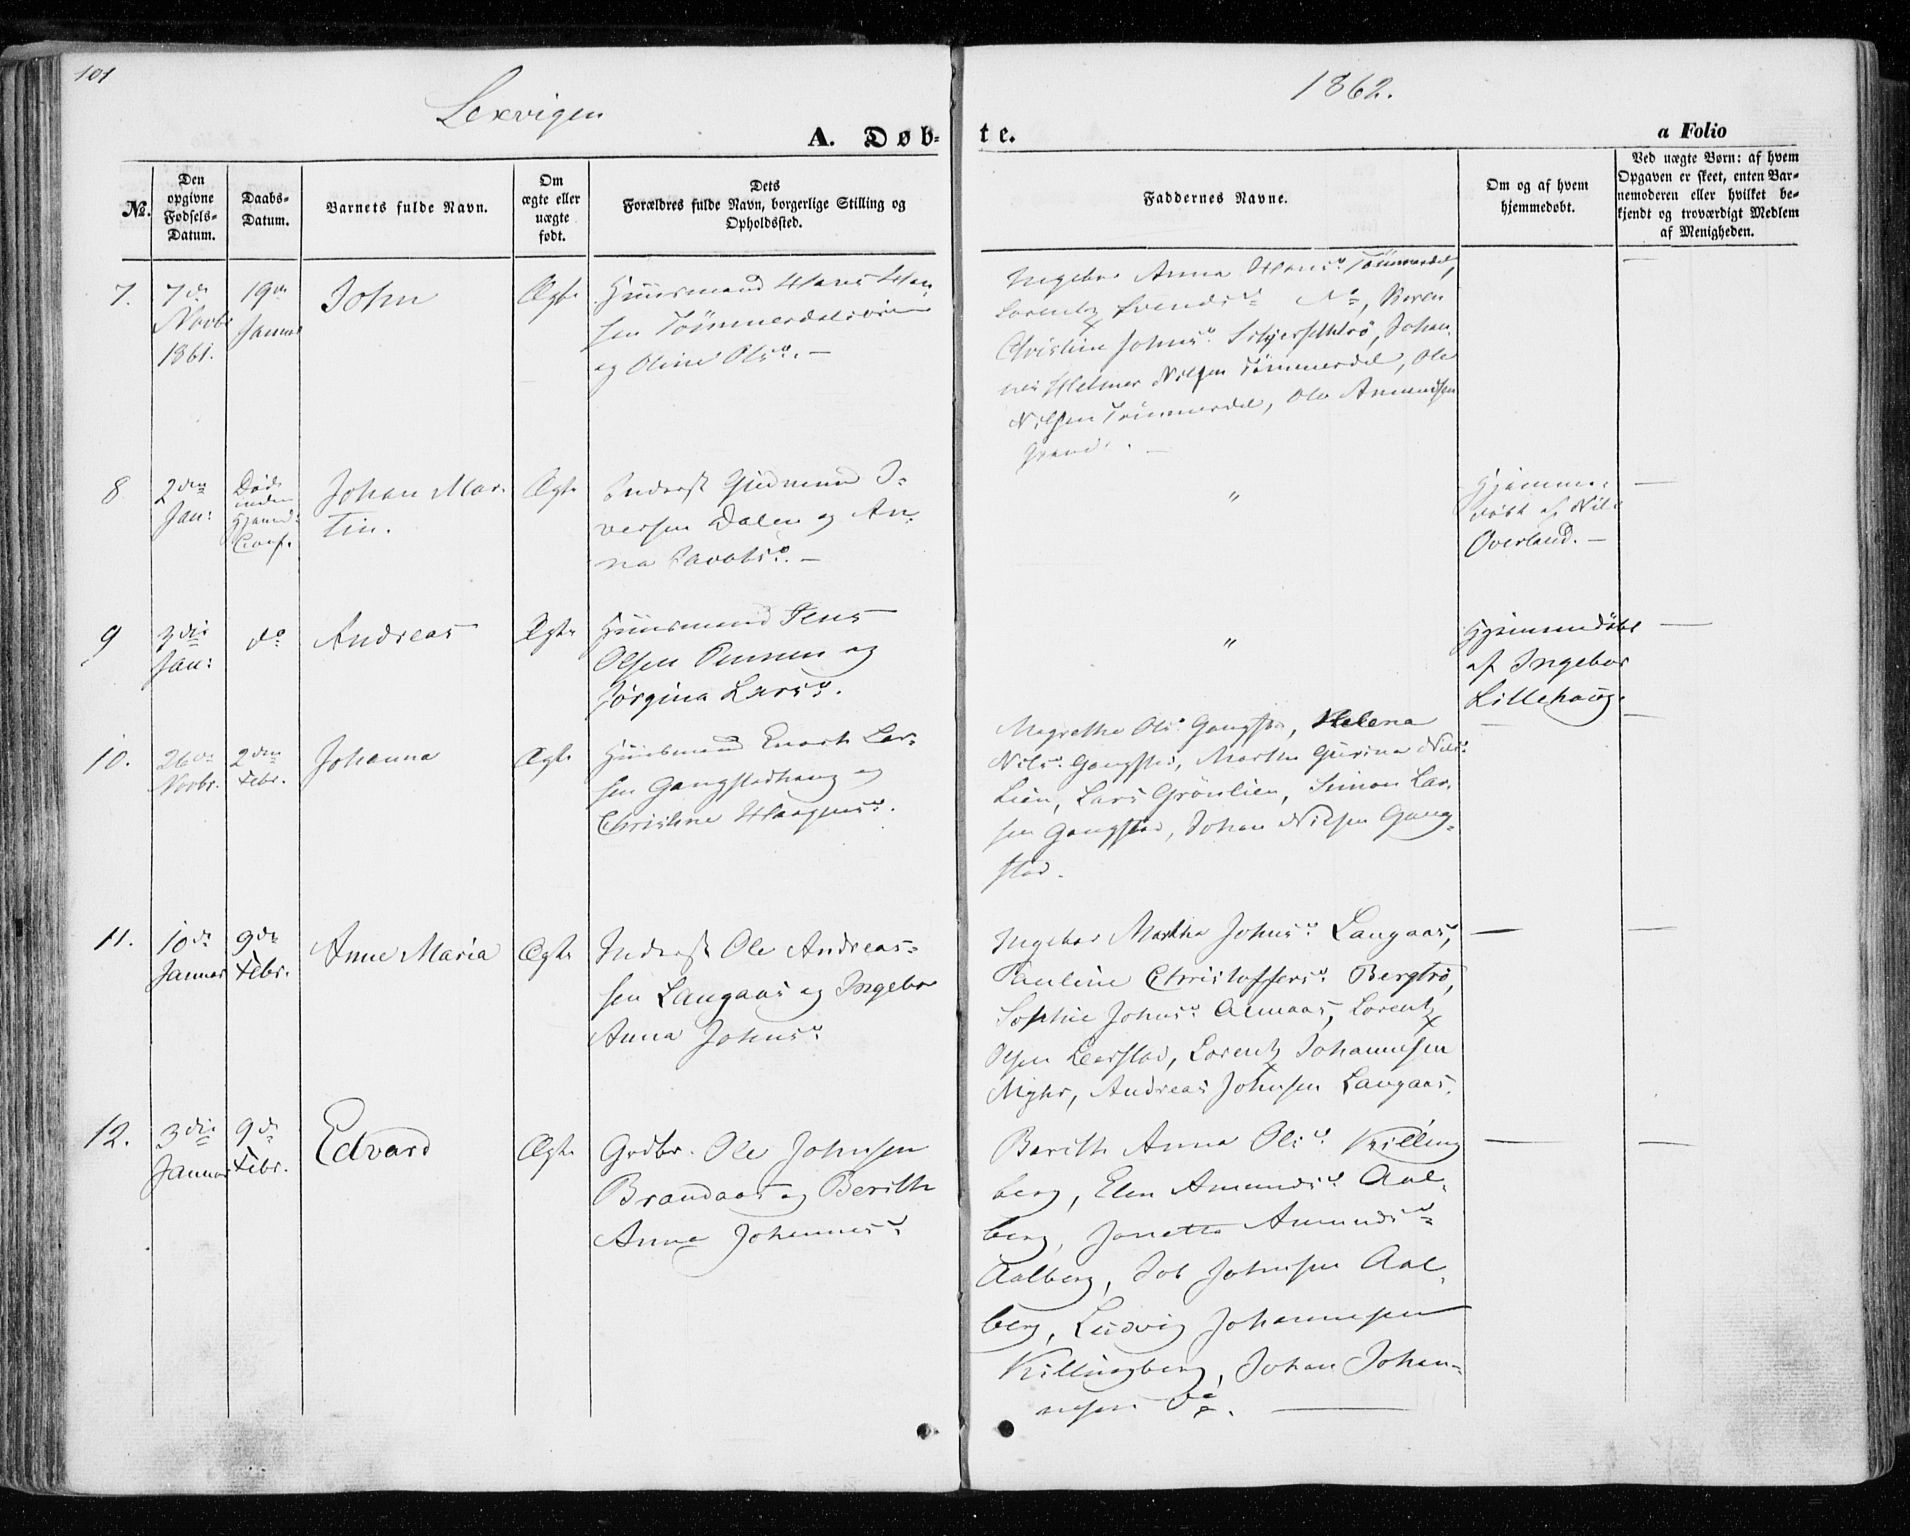 101
Lexvigen
1862.
A. Døb-
te.
a Folio
No.
Den opgivne Fødsels-Datum.
Daabs-Datum.
Barnets fulde Navn.
Om ægte eller uægte født.
Dets Forældres fulde Navn, borgerlige Stilling og Opholdssted.
Faddernes Navne.
Om og af hvem hjemmedøbt.
Ved uægte Børn: af hvem Opgaven er skeet, enten Barnemoderen eller hvilket bekjendt og troværdigt Medlem af Menigheden.
7.
7de
Novbr
1861.
19de
Januar
John
Ægte
Huusmand Hans Han-
sen Tømmerdal
og Oline Olsd. —
Ingebor Anna Hansd. Tømmerdal,
Lorentz Svends Do, Karen
Christine Johnsd. Johan-
nes Helmer Nilsen Tømmerdal, Ole
Nilsen Tømmerdal, Ole Amundsen
Grande. —
—
8
2den
Jan:
Død
inden
Hjemd:
Conf.
Johan Mar-
tin.
Ægte
Inderst Gudmund I-
versen Dalen og An-
na Jacobsd. —
"
Hjemme-
døbt af Nils
Overland. —
—
9
3die
Jan:
do
Andreas
Ægte
Huusmand Jens
Olsen og
Jørgina Larsd.
"
Hjemmedøbt
af Ingebor
Lillehaug.
—
10.
26de
Novbr.
2den
Febr.
Johanna
Ægte
Huusmand Enock Lar-
sen Gangstadhaug og
Christine Haagensd.
Magrethe Olsd. Gangstad, Helena
Nilsd. Gangstad, Martha Gurina Nilsd.
Lien, Lars Grönlien, Simon Lar-
sen Gangstad, Johan Nilsen Gang-
stad.
—
—
11.
10de
Januar
9de
Febr.
Anne Maria
Ægte
Inderst Ole Andreas-
sen Langaas og Ingebor
Anna Johnsd.
Ingebor Martha Johnsd. Langaas,
Pauline Christoffersd. Bergtrö,
Sophie Johnsd. Aamaas, Lorentz
Olsen Leerstad, Lorentz Johannesen
Myhr, Andreas Johnsen Langaas.
—
—
12.
3die
Januar
9de
Febr.
Edvard
Ægte
Grdbr. Ole Johnsen
Brandaas og Berith
Anna Johannesd.
Berith Anna Olsd. Killing
berg, Elen Amundsd. Aal-
berg, Jonetta Amundsd.
Aalberg, Job Johnsen Aal-
berg, Ludvig Johannesen
Killingberg, Johan Johan-
nesen Do. —
—
—